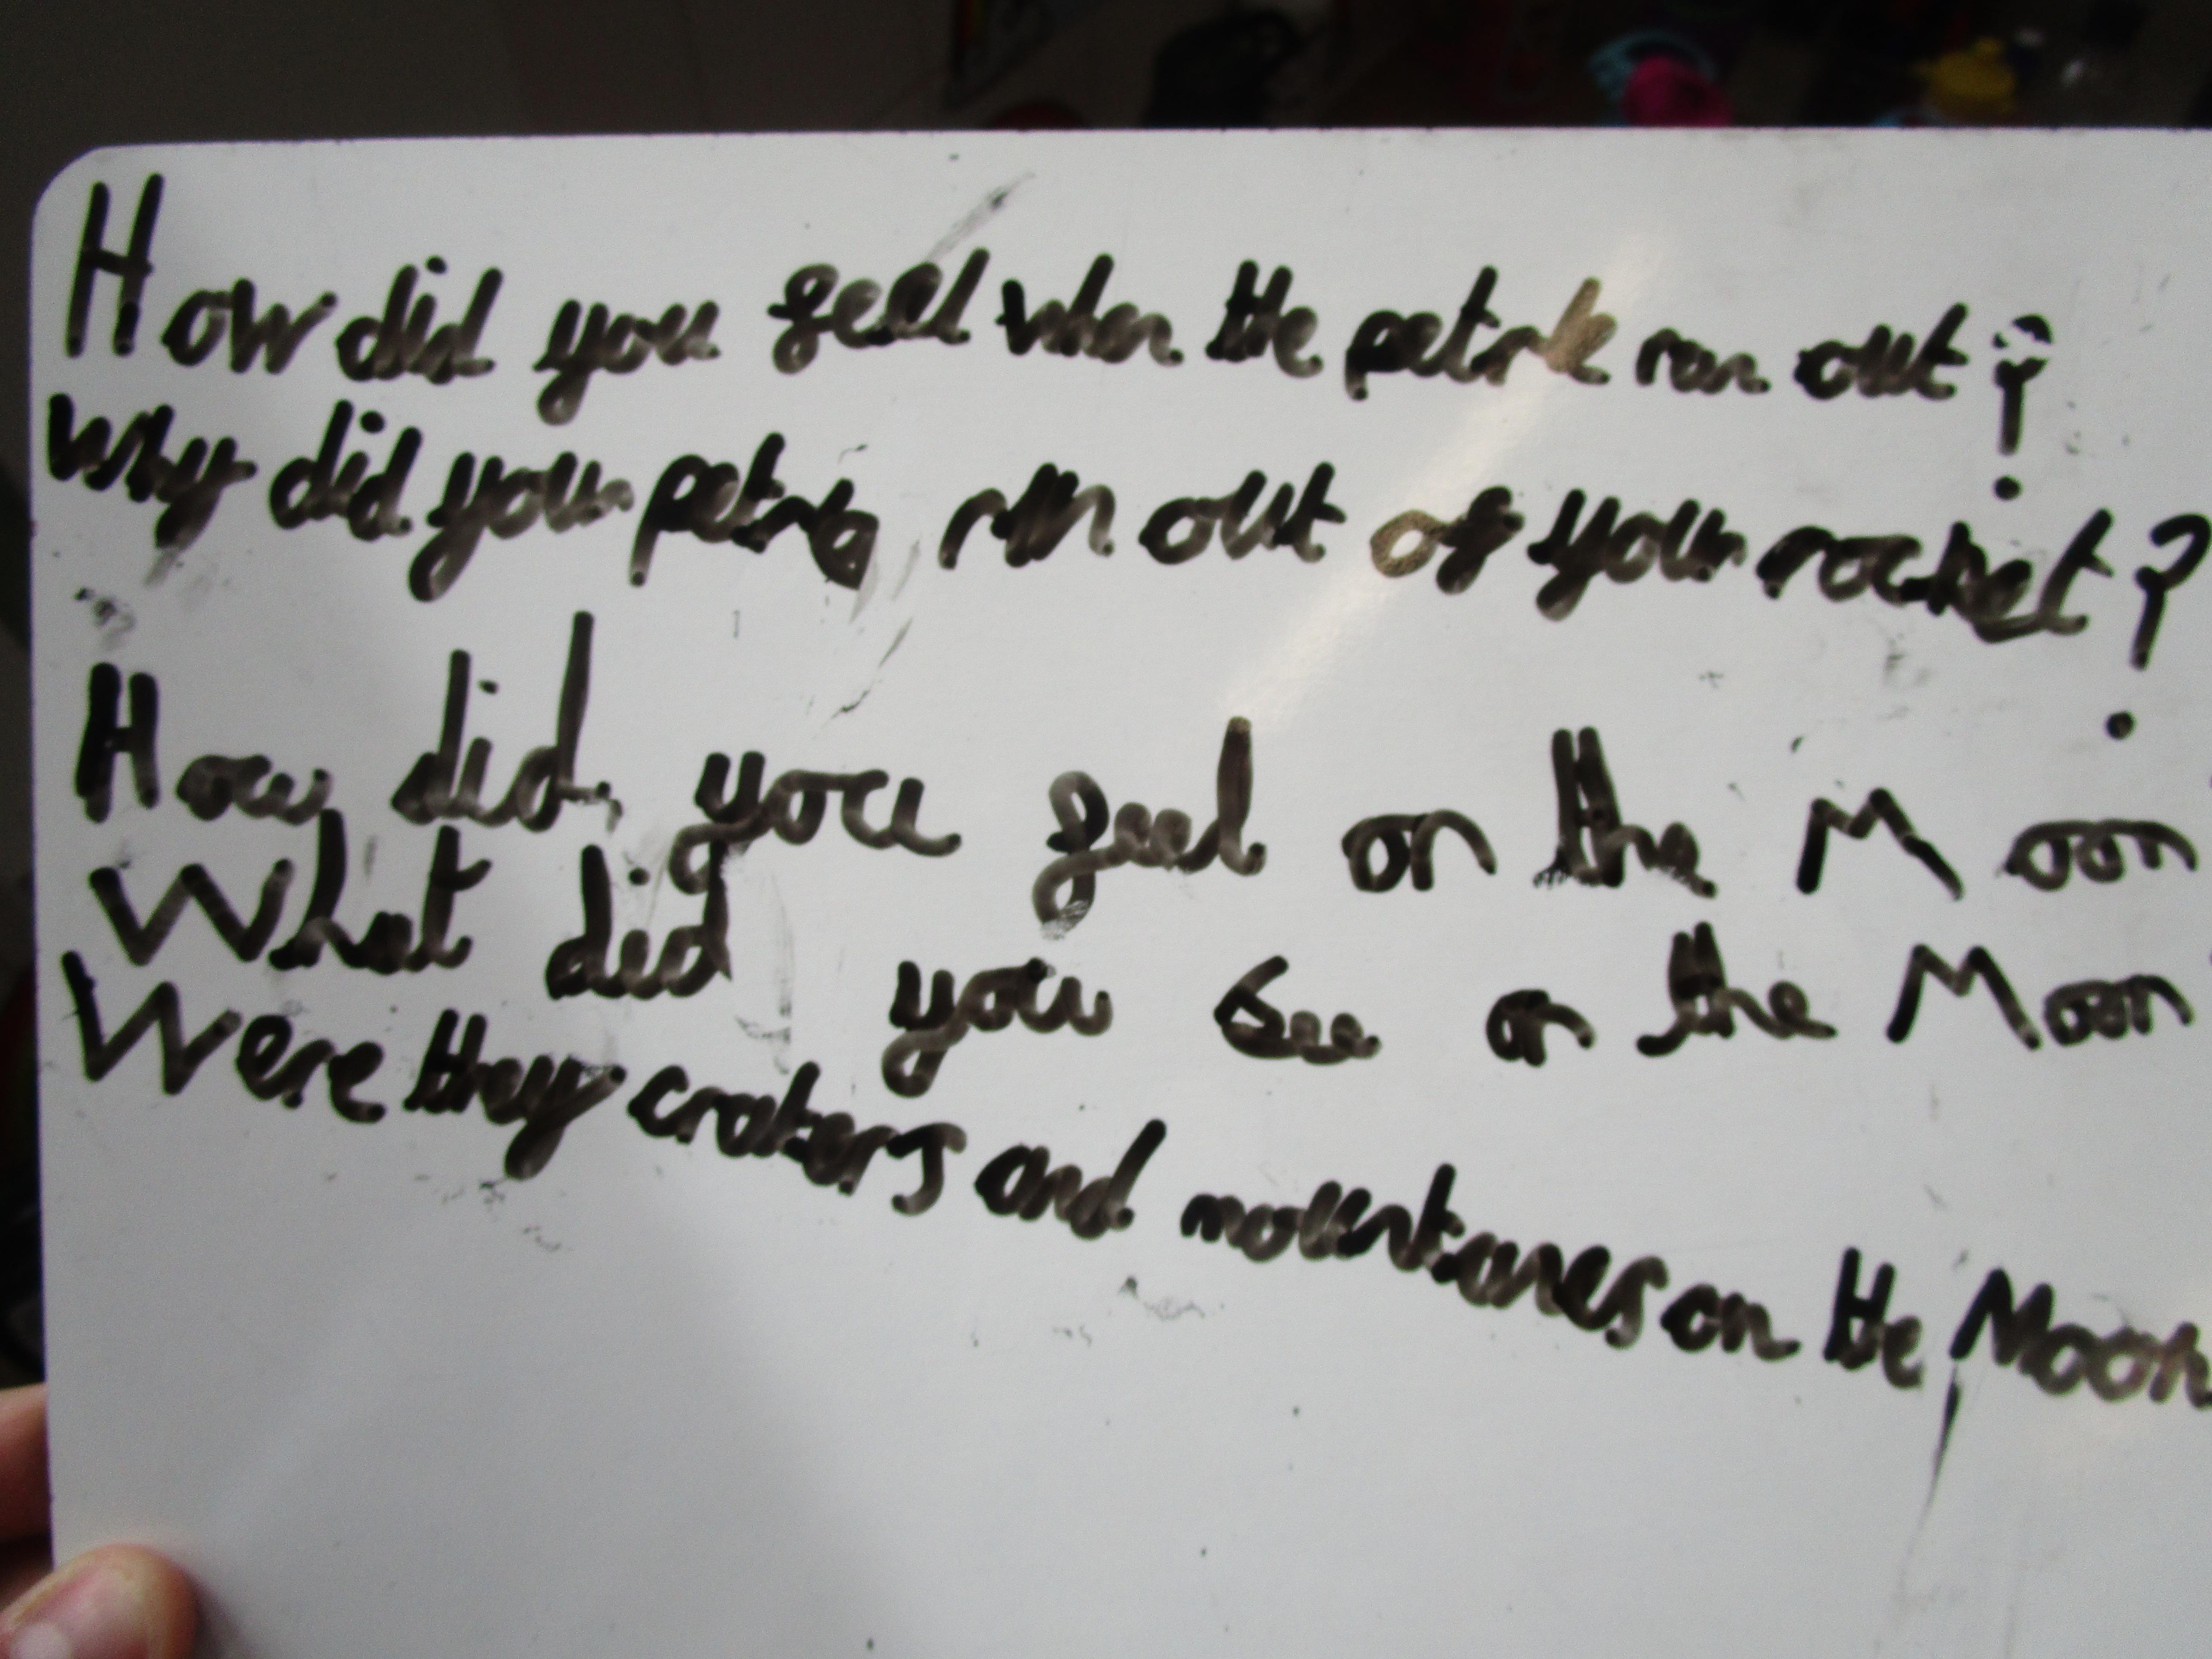 How did you feel when the petrle ran out?
Why did your petrle run out of your rocket?
How did you feel on the Moon
What did you see on the Moon
Were they craters and mountanes on the Moon